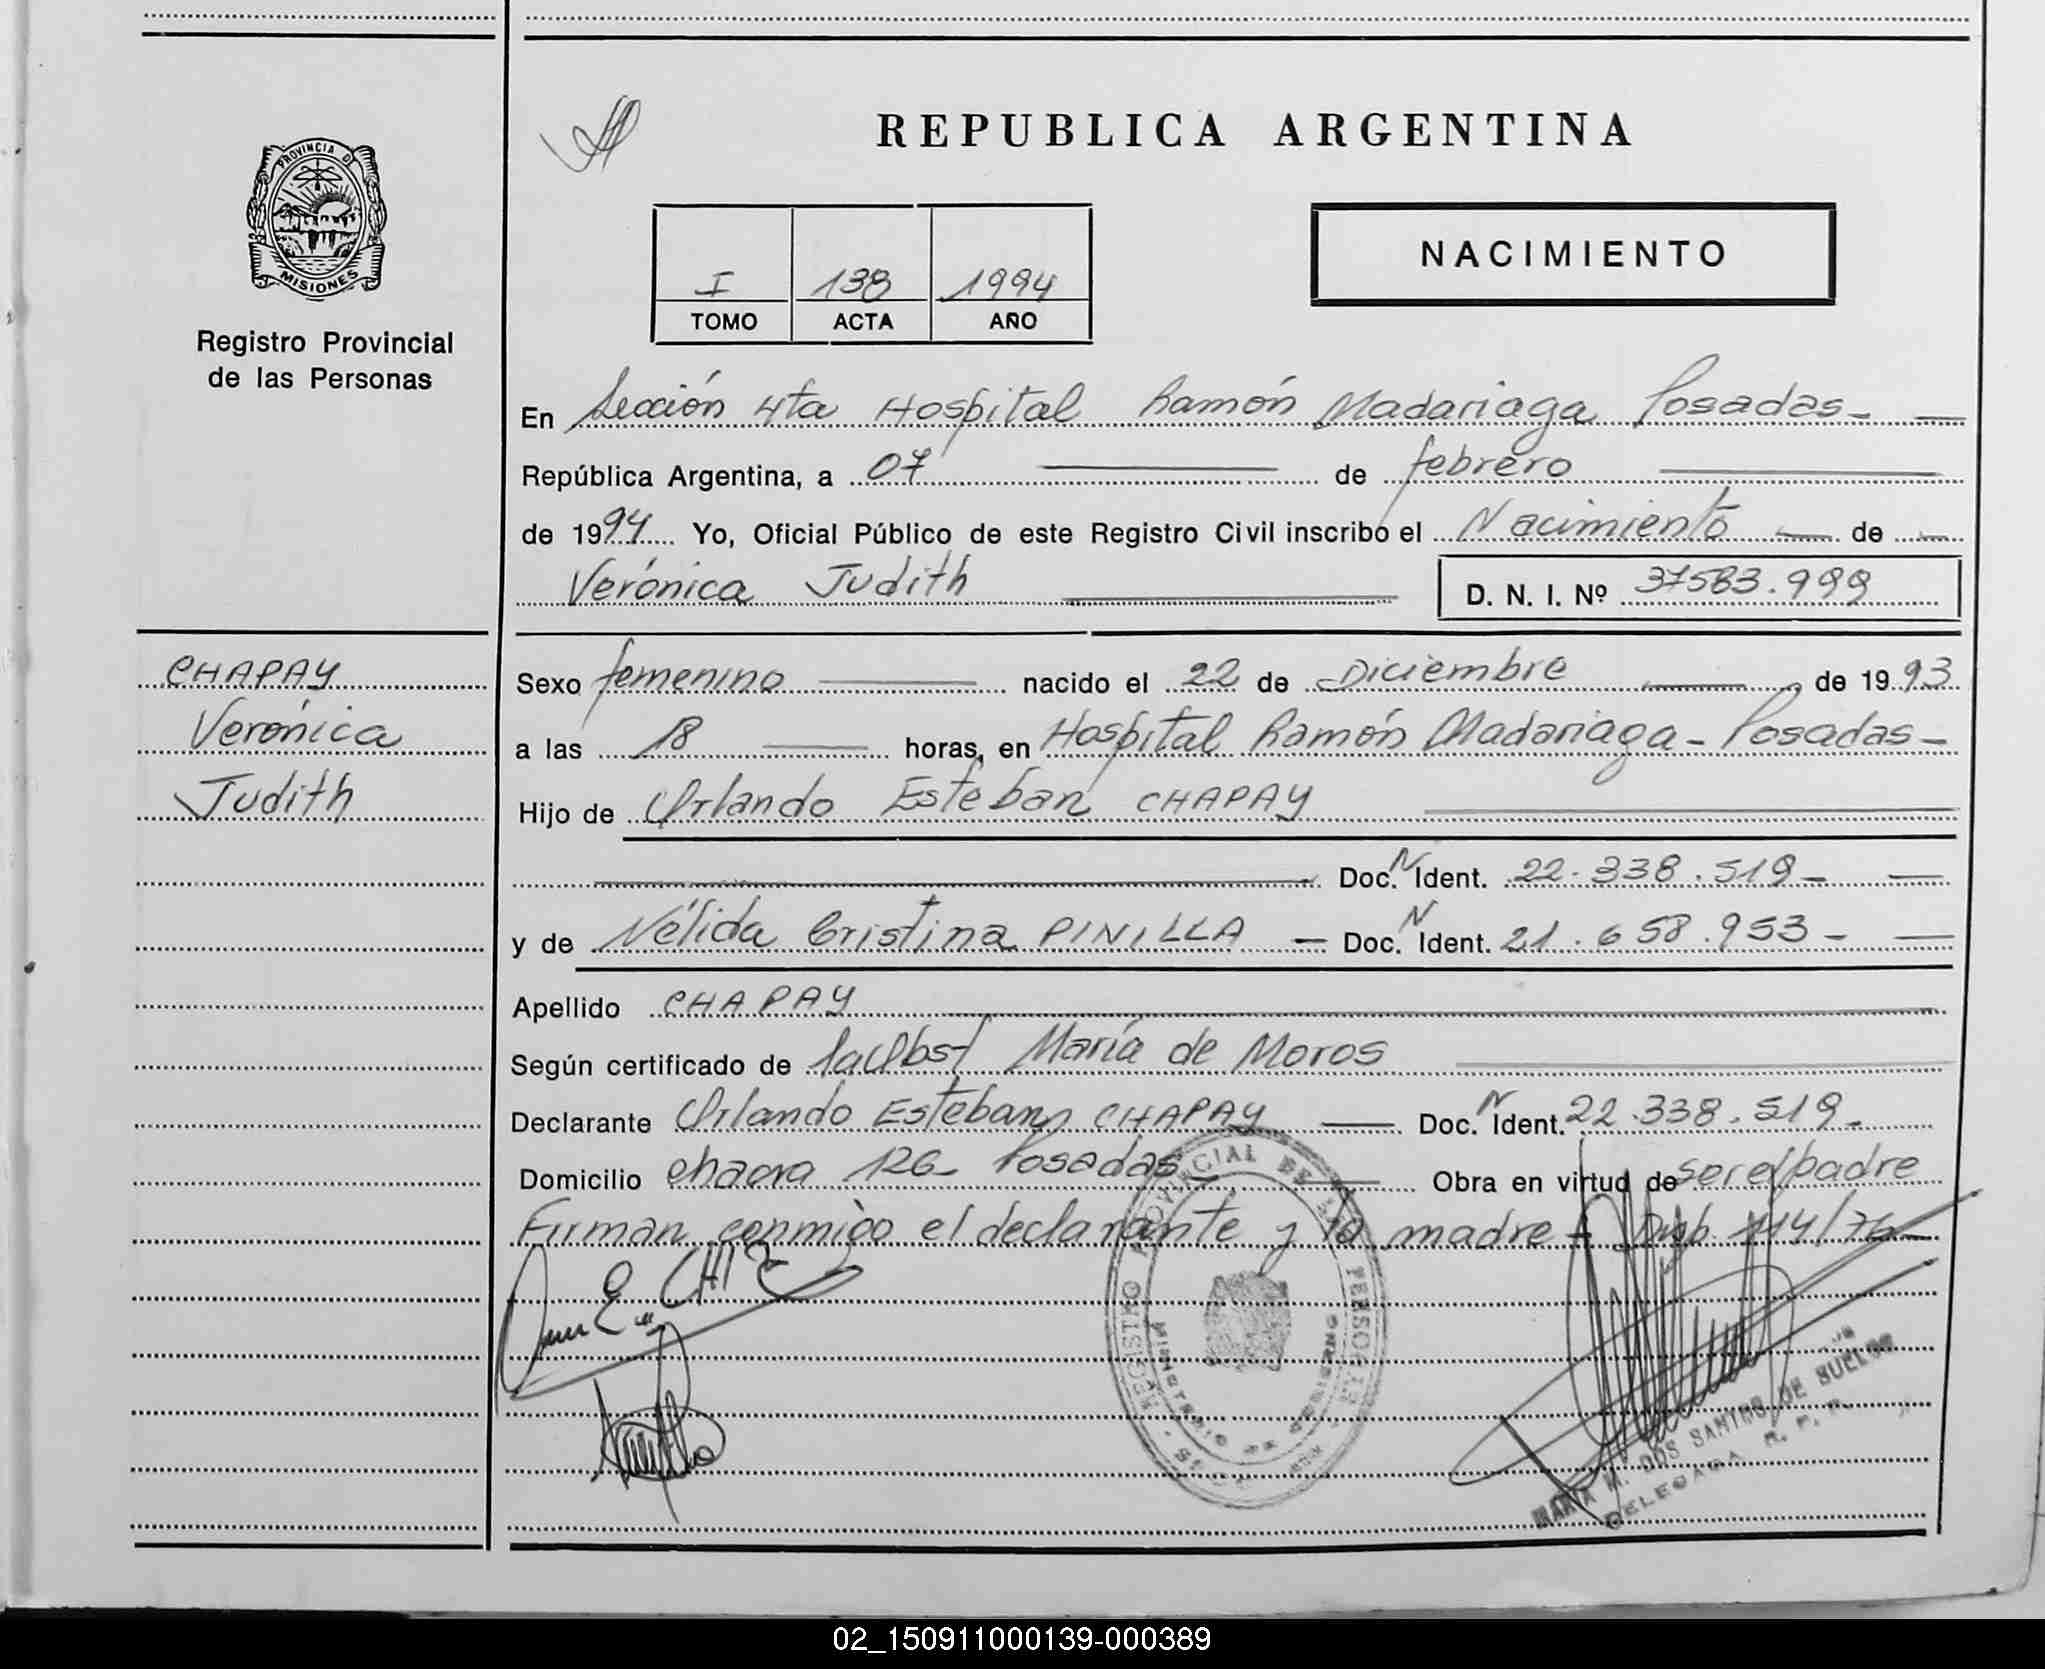 PROVINCIA D
MISIONES
Registro Provincial
de las Personas
REPUBLICA ARGENTINA
NACIMIENTO
I 138 1994
TOMO ACTA AÑO
En Sección 4ta Hospital Ramón Madariaga Posadas-
República Argentina, a 07 de febrero
de 1994 Yo, Oficial Público de este Registro Civil inscribo el Nacimiento de
Verónica Judith D. N. I. Nº 37583.999
CHAPAY
Verónica
Judith
Sexo femenino nacido el 22 de Diciembre de 1993
a las 18 horas, en Hospital Ramón Madariaga - Posadas-
Hijo de Orlando Esteban CHAPAY
Doc. N Ident. 22.338.519-
y de Nélida Cristina PINILLA - Doc. N Ident. 21.658.953-
Apellido CHAPAY
Según certificado de la Obst María de Moros
Declarante Orlando Esteban CHAPAY Doc. N Ident. 22.338.519-
Domicilio chacra 126- Posadas Obra en virtud de ser el padre
Firman conmigo el declarante y la madre - Disp. 114/76
REGISTRO PROVINCIAL DE LAS PERSONAS
MINISTERIO DE GOBIERNO
MARIA M. DOS SANTOS DE SUELOS
DELEGADA R. P. P.
02_150911000139-000389